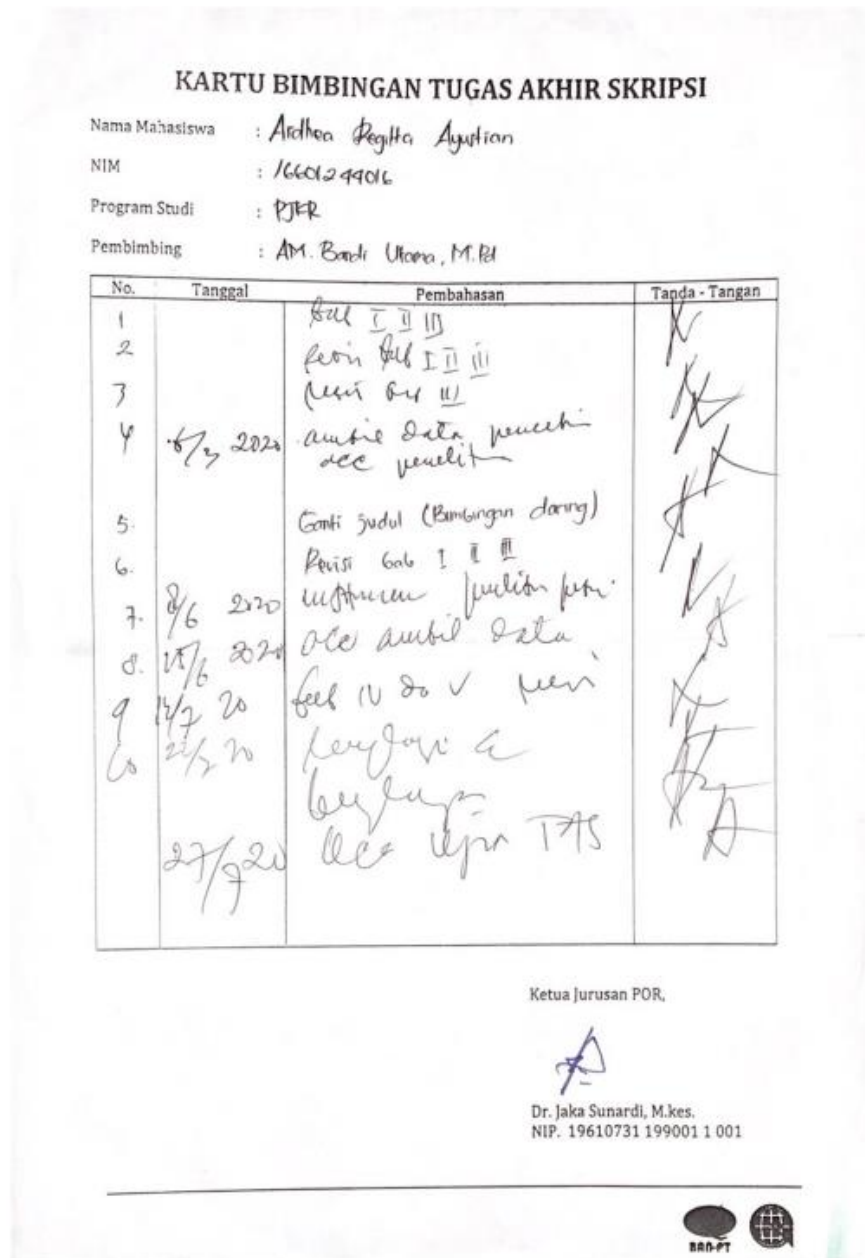 KARTU BIMBINGAN TUGAS AKHIR SKRIPSI
Nama Mahasiswa : Ardhea Regitta Ayustian
NIM : 16601244016
Program Studi : PJKR
Pembimbing : AM. Bandi Utama, M.Pd
No. Tanggal Pembahasan Tanda - Tangan
1 Bab I II III
2 Bab I II III
3 III
4 /3 2020 ambil data
acc
5. Ganti judul (Bimbingan daring)
6. Revisi bab I II III
7. 8/6 2020
8. 15/6 2020 acc ambil data
9 /7 20 Bab IV V
10 20
27/7 20 acc ujian TAS
Ketua Jurusan POR,
Dr. Jaka Sunardi, M.kes.
NIP. 19610731 199001 1 001
BAN-PT